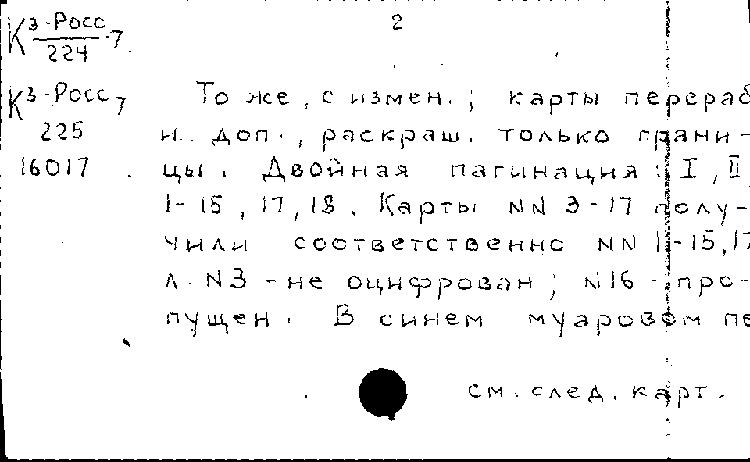 К 3-Росс 7
224
2
К 3-Росс 7
225
16017
То же, с измен.; карты перераб
и доп., раскраш. только грани-
цы. Двойная пагинация: I, II,
1-15, 17, 18. Карты NN 3-17 полу-
чили соответственно NN 1-15, 17
л. N3 - не оцифрован; N16 - про-
пущен. В синем муаровом пе
см. след. карт.